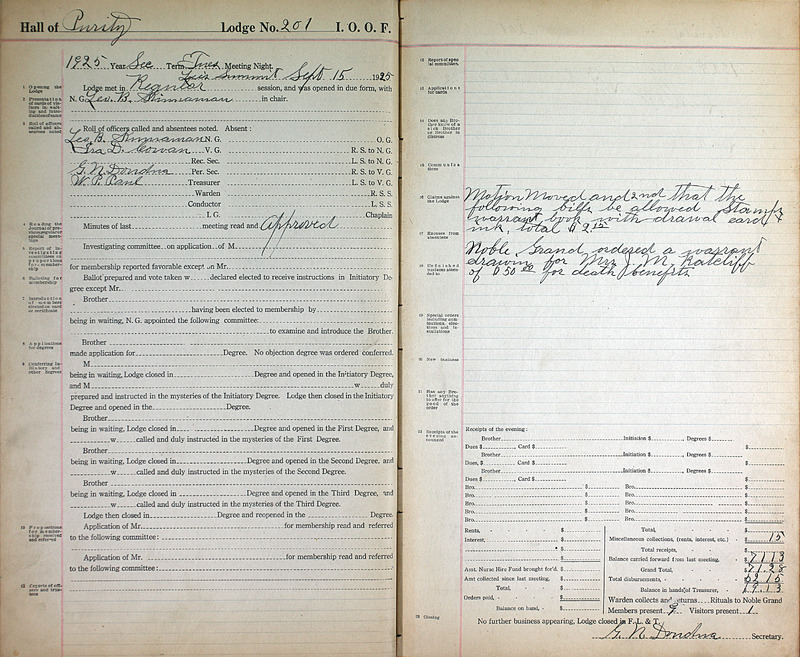 Hall of Purity Lodge No. 201 I. O. O. F.
1925 Year Sec Term Tues Meeting Night.
Lees Summit Sept 15 1925
1 Opening the Lodge
Lodge met in Regular session, and was opened in due form, with
N. G. Leo. B. Shinnaman in chair.
Roll of officers called and absentees noted. Absent:
Leo B. Shinnaman N. G. O. G.
Ira D. Cowan V. G. R. S. to N. G.
Rec. Sec. L. S. to N. G.
G. N. Dondna Per. Sec. R. S. to V. G.
W. P. Paul Treasurer L. S. to V. G.
Warden R. S. S.
Conductor L. S. S.
I. G. Chaplain
Minutes of last meeting read and Approved
Investigating committee on application of M
for membership reported favorable except on Mr.
6 Balloting for membership
Ballot prepared and vote taken w declared elected to receive instructions in Initiatory De-
gree except Mr.
Brother
having been elected to membership by
being in waiting, N. G. appointed the following committee:
to examine and introduce the Brother.
8 Applications for degrees
Brother
made application for Degree. No objection degree was ordered conferred.
M
being in waiting, Lodge closed in Degree and opened in the Initiatory Degree,
and M w duly
prepared and instructed in the mysteries of the Initiatory Degree. Lodge then closed in the Initiatory
Degree and opened in the Degree.
Brother
being in waiting, Lodge closed in Degree and opened in the First Degree, and
w called and duly instructed in the mysteries of the First Degree.
Brother
being in waiting, Lodge closed in Degree and opened in the Second Degree, and
w called and duly instructed in the mysteries of the Second Degree.
Brother
being in waiting, Lodge closed in Degree and opened in the Third Degree, and
w called and duly instructed in the mysteries of the Third Degree.
Lodge then closed in Degree and reopened in the Degree.
Application of Mr. for membership read and referred
to the following committee:
Application of Mr. for membership read and referred
to the following committee:
13 Report of special committees.
14 Applications for cards
15 Does any Brother know of a sick Brother or Brother in distress
16 Claims against the Lodge
Motion Moved and 2nd that the
following bills be allowed Stamps
warrant book with drawal card &
ink, total $2.15
17 Excuses from absentees
Noble Grand ordered a warrant
drawing for Mrs J. M. Ratcliff
of $50.00 for death benefits
20 New business
21 Has any Brother anything to offer for the good of the order
Receipts of the evening:
Brother Initiation $ , Degrees $
Dues $ , Card $ $
Brother Initiation $ , Degrees $
Dues, $ , Card $ $
Brother Initiation $ , Degrees $
Dues $ , Card $ $
Bro. $ Bro. $
Bro. $ Bro. $
Bro. $ Bro. $
Bro. $ Bro. $
Bro. $ Bro. $
Rents, $ Total, $
Interest, $ Miscellaneous collections, (rents, interest, etc.) $ 15
$ Total receipts, $
$ Balance carried forward from last meeting, $ 71 13
Amt. Nurse Hire Fund brought for'd. $ Grand Total, $ 71.28
Amt collected since last meeting, $ Total disbursements, $ 52 15
Total, $ Balance in hands of Treasurer, $ 19.13
Orders paid, $ Warden collects and returns Rituals to Noble Grand
Balance on hand, $ Members present 9 Visitors present 1
23 Closing
No further business appearing, Lodge closed in F., L. & T.
G. N. Dondna Secretary.